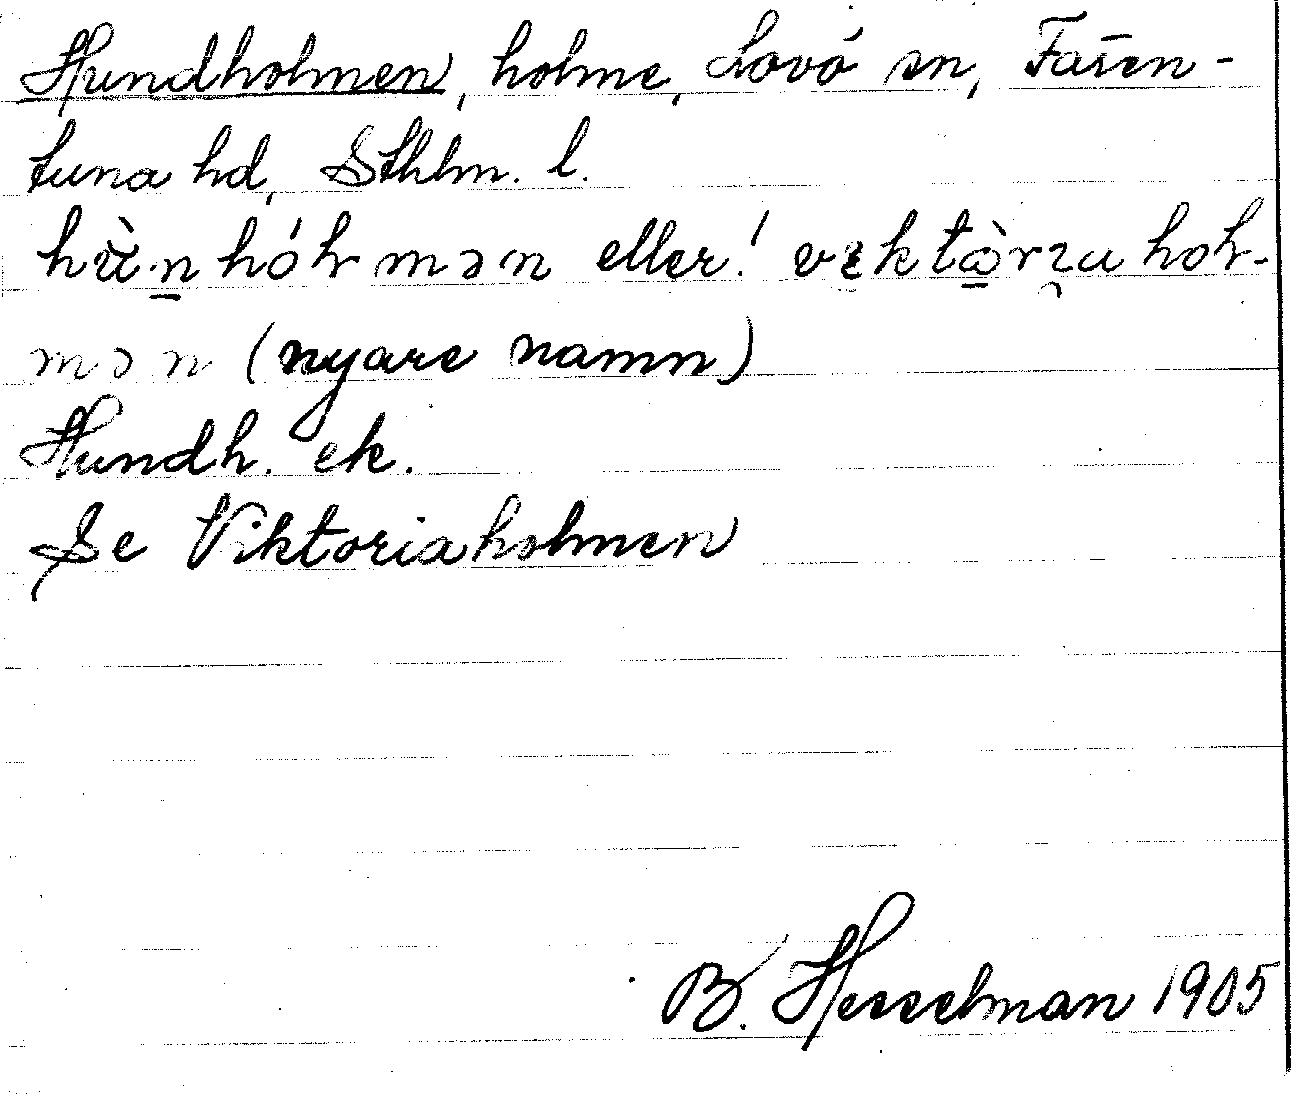 Hundholmen, holme, Lovö sn, Fären-
tuna hd, Sthlm. l.
hùnhólmən eller! viktòriahol-
mən (nyare namn)
Hundh. ek.
Se Viktoriaholmen
B. Hesselman 1905